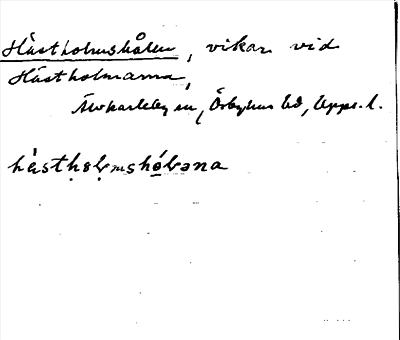 Hästholmshålen, vikar vid
Hästholmarna,
Älvkarleby sn, Örbyhus hd, Upps. l.
hästhol̥mshó̱lǝna